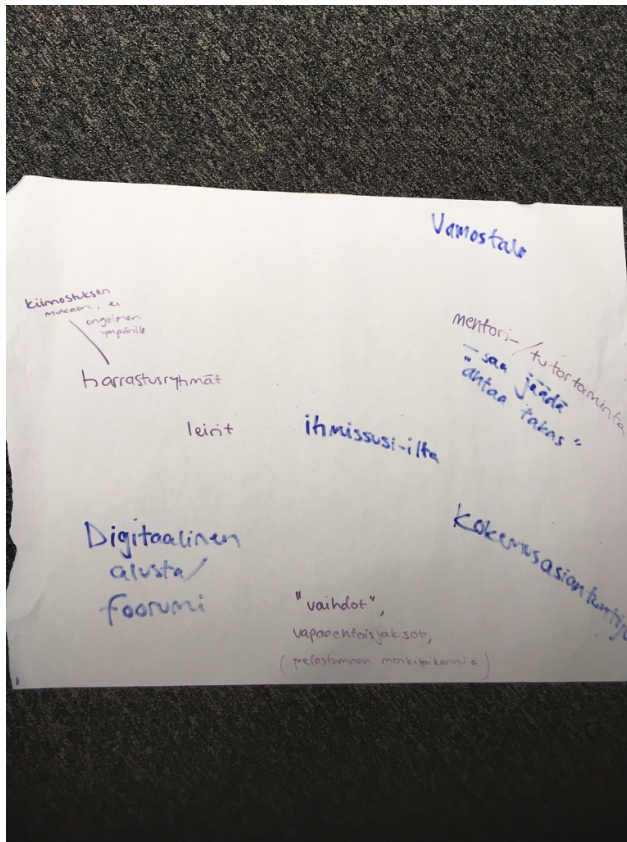 Vamostalo
kiinnostuksen
mukaan, ei
ongelman
ympärille
harrastusryhmät
mentori-/tutortoiminta
- saa jäädä
"antaa takas"
leirit
ihmissusi-ilta
Digitaalinen
alusta/
foorumi
Kokemusasiantuntija
"vaihdot",
vapaaehtoisjaksot,
(pelastamaan merikilpikonnia)